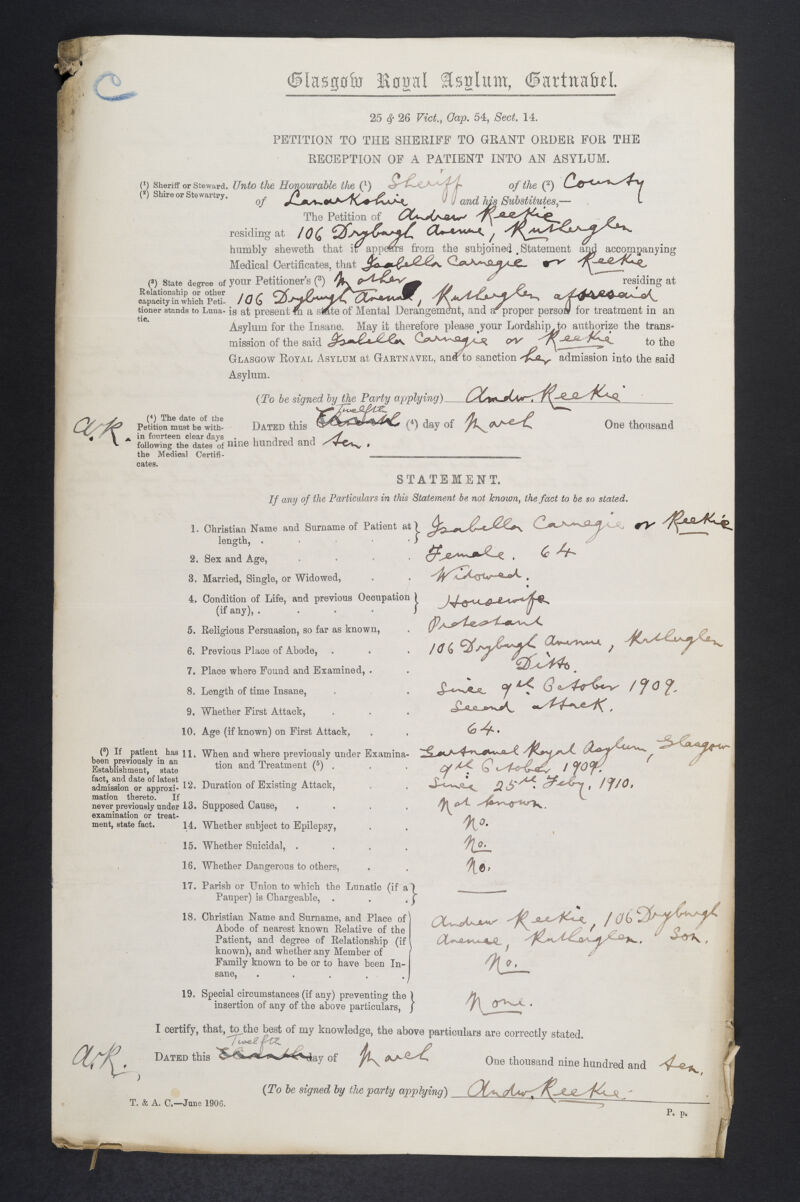 C
Glasgow Royal Asylum, Gartnavel.
25 & 26 Vict., Cap. 54, Sect. 14.
PETITION TO THE SHERIFF TO GRANT ORDER FOR THE
RECEPTION OF A PATIENT INTO AN ASYLUM.
(1) Sheriff or Steward.
(2) Shire or Stewartry.
Unto the Honourable the (1) Sheriff of the (2) County
of Lanarkshire and his Substitutes,—
The Petition of Andrew Reekie
residing at 106 Dryburgh Avenue, Rutherglen
humbly sheweth that it appears from the subjoined Statement and accompanying
Medical Certificates, that Isabella Carnegie or Reekie
(3) State degree of
Relationship or other
capacity in which Peti-
tioner stands to Luna-
tic.
your Petitioner's (3) Mother residing at
106 Dryburgh Avenue, Rutherglen aforesaid
is at present in a state of Mental Derangement, and a proper person for treatment in an
Asylum for the Insane. May it therefore please your Lordship to authorize the trans-
mission of the said Isabella Carnegie or Reekie to the
GLASGOW ROYAL ASYLUM at GARTNAVEL, and to sanction her admission into the said
Asylum.
(To be signed by the Party applying) Andw. Reekie
A.R.
(4) The date of the
Petition must be with-
in fourteen clear days
following the dates of
the Medical Certifi-
cates.
Twelfth
DATED this Eleventh (4) day of March One thousand
nine hundred and ten.
STATEMENT.
If any of the Particulars in this Statement be not known, the fact to be so stated.
1. Christian Name and Surname of Patient at length, . Isabella Carnegie or Reekie
2. Sex and Age, Female. 64
3. Married, Single, or Widowed, Widowed.
4. Condition of Life, and previous Occupation (if any), . Housewife
5. Religious Persuasion, so far as known, Protestant
6. Previous Place of Abode, 106 Dryburgh Avenue, Rutherglen
7. Place where Found and Examined, . Ditto.
8. Length of time Insane, Since 9th October 1909.
9. Whether First Attack, Second attack.
10. Age (if known) on First Attack, 64.
(5) If patient has
been previously in an
Establishment, state
fact, and date of latest
admission or approxi-
mation thereto. If
never previously under
examination or treat-
ment, state fact.
11. When and where previously under Examina- Gartnavel Royal Asylum, Glasgow
tion and Treatment (5) . 9th October 1909.
12. Duration of Existing Attack, Since 25th Feby. 1910.
13. Supposed Cause, Not known.
14. Whether subject to Epilepsy, No.
15. Whether Suicidal, . No.
16. Whether Dangerous to others, No.
17. Parish or Union to which the Lunatic (if a
Pauper) is Chargeable, .
18. Christian Name and Surname, and Place of
Abode of nearest known Relative of the Andrew Reekie, 106 Dryburgh
Patient, and degree of Relationship (if Avenue, Rutherglen. Son.
known), and whether any Member of
Family known to be or to have been In- No.
sane, .
19. Special circumstances (if any) preventing the
insertion of any of the above particulars, None.
I certify, that, to the best of my knowledge, the above particulars are correctly stated.
Twelfth
A.R.
DATED this Eleventh day of March One thousand nine hundred and ten.
(To be signed by the party applying) Andw. Reekie.
T. & A. C.—June 1906.
P. p.